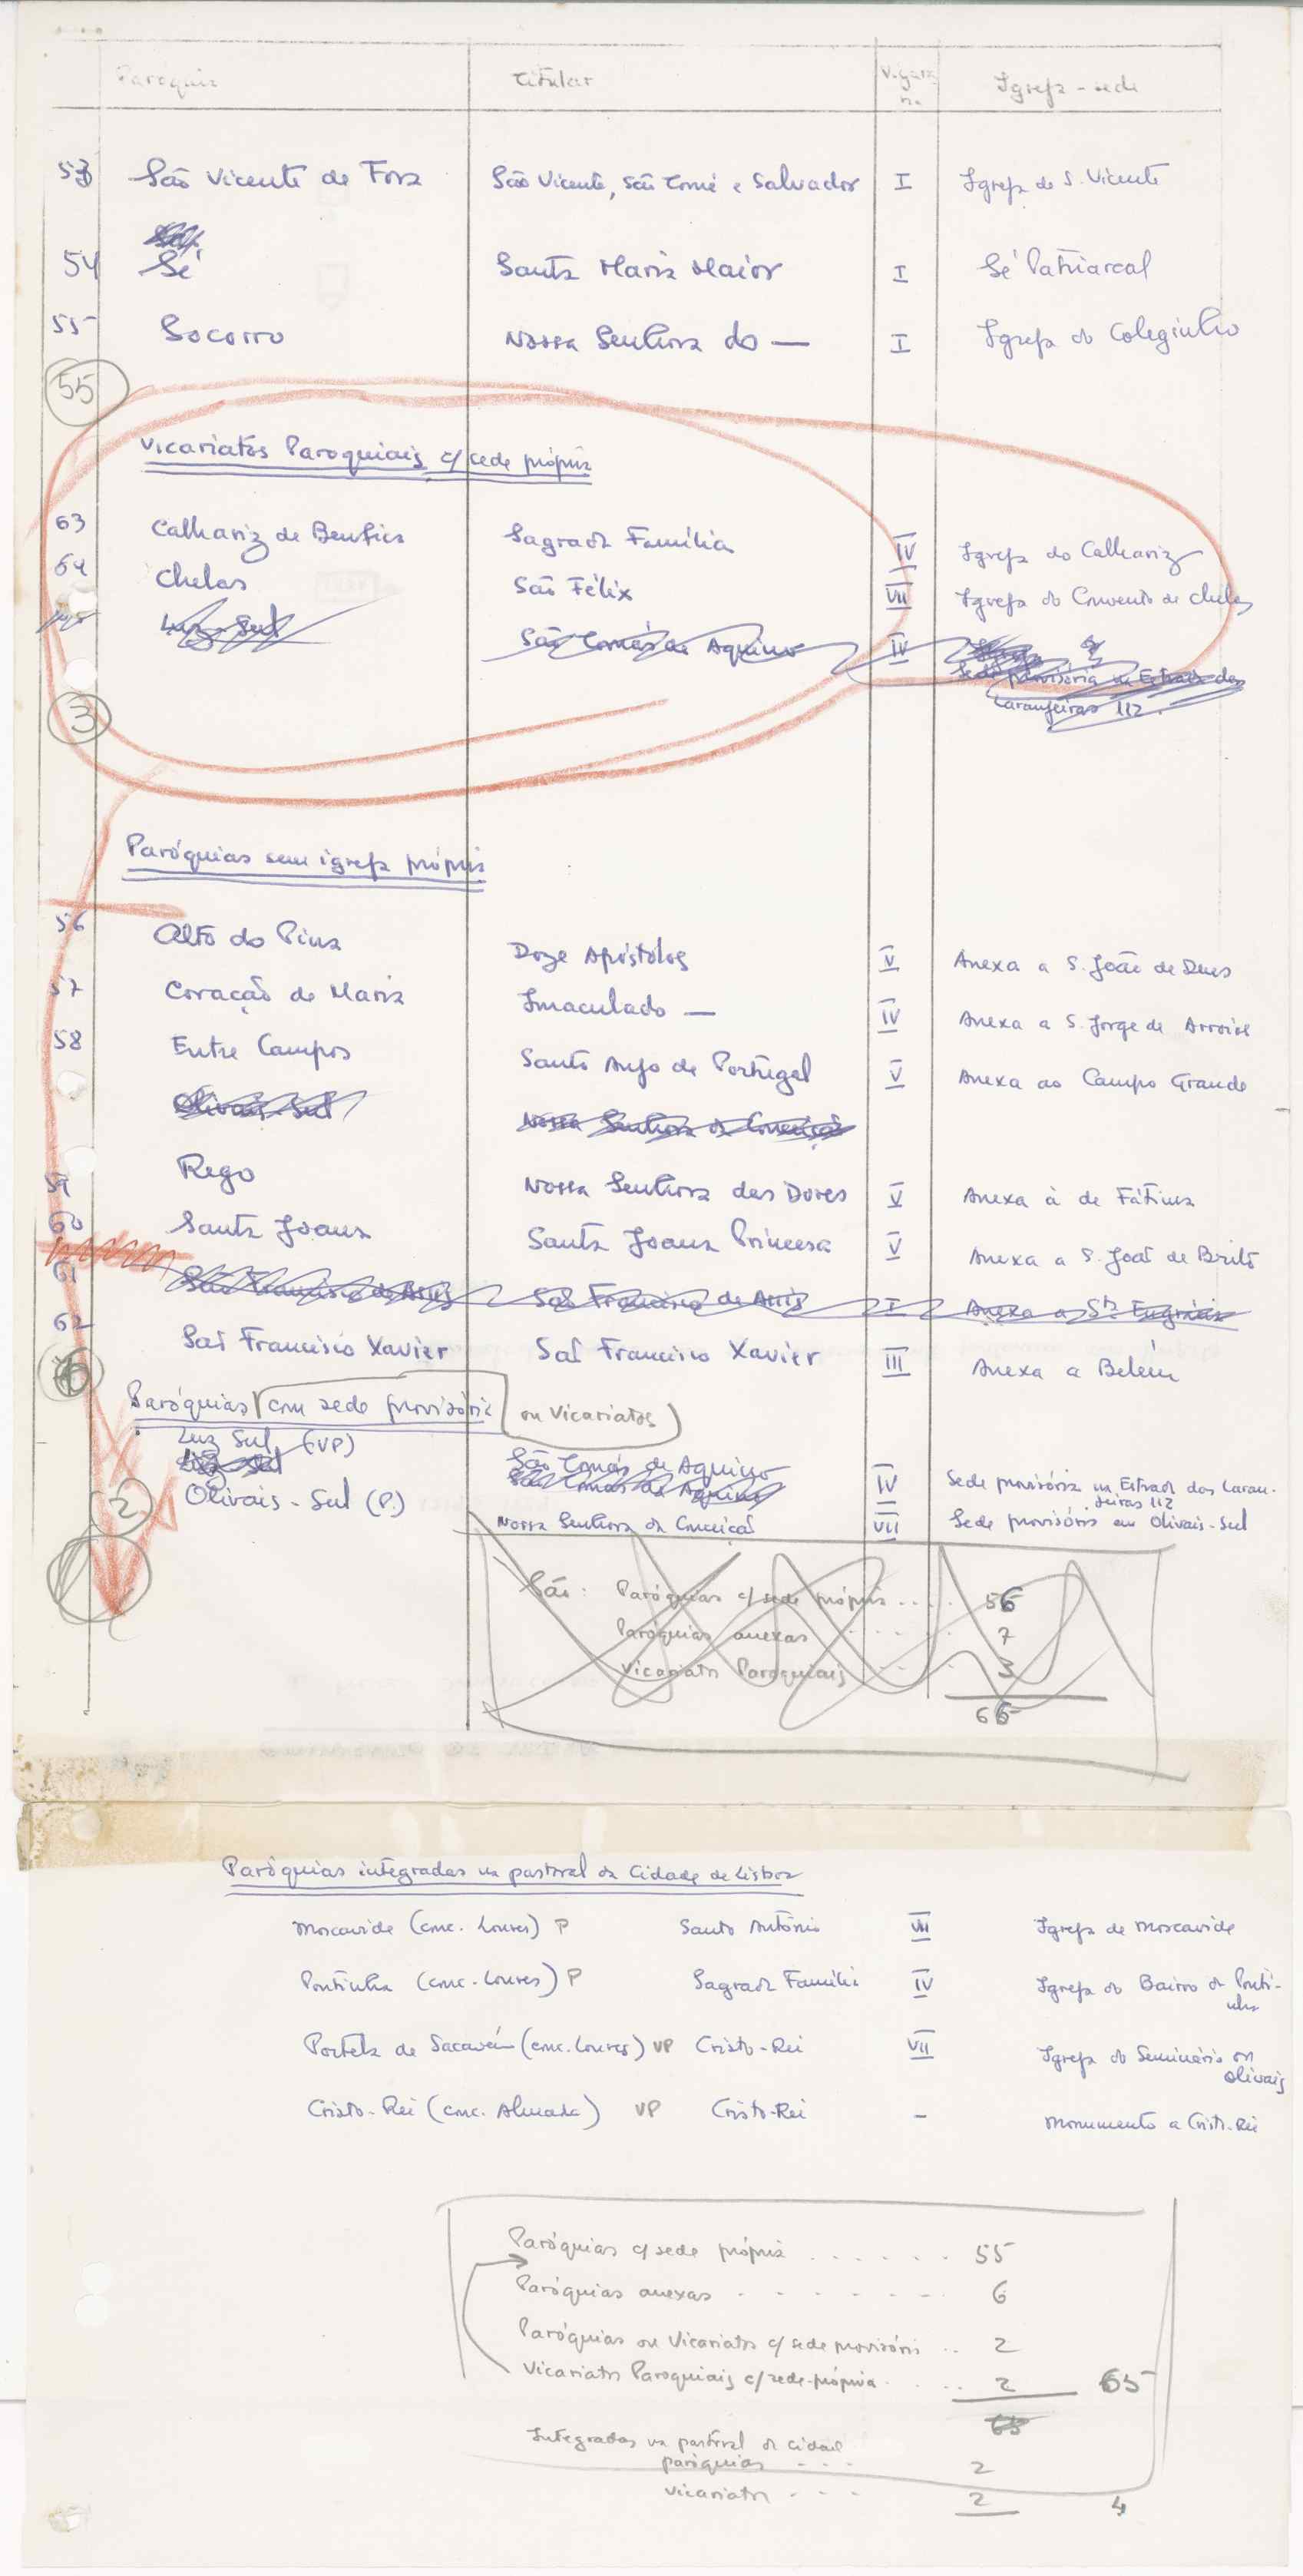 Paróquia Titular Vigara. n. Igreja-sede
53 São Vicente de Fora São Vicente, São Tomé e Salvador I Igreja de S. Vicente
54 Sé Santa Maria Maior I Sé Patriarcal
55 Socorro Nossa Senhora do — I Igreja do Coleginho
55
Vicariatos Paroquiais c/ sede própria
63 Calhariz de Benfica Sagrada Família IV Igreja do Calhariz
64 Chelas São Félix VII Igreja do Convento de Chelas
Luz-Sul São Tomás de Aquino IV Sede provisória na Estrada das
Laranjeiras 112.
3
Paróquias sem igreja própria
56 Alto do Pina Doze Apóstolos V Anexa a S. João de Deus
57 Coração de Maria Imaculado — IV Anexa a S. Jorge de Arroios
58 Entre Campos Santo Anjo de Portugal V Anexa ao Campo Grande
Olivais-Sul Nossa Senhora da Conceição
59 Rego Nossa Senhora das Dores V Anexa à de Fátima
60 Santa Joana Santa Joana Princesa V Anexa a S. João de Brito
61 São Francisco de Assis São Francisco de Assis I Anexa a Stª Engrácia
62 São Francisco Xavier São Francisco Xavier III Anexa a Belém
Paróquias com sede provisória ou Vicariatos
Luz Sul (VP) São Tomás de Aquino IV Sede provisória na Estrada das Laran-
jeiras 112
Luz-Sul São Tomás de Aquino
2 Olivais-Sul (P.) Nossa Senhora da Conceição VII Sede provisória em Olivais-Sul
São: Paróquias c/ sede própria .... 56
Paróquias anexas ..... 7
Vicariatos Paroquiais ... 3
66
Paróquias integradas na pastoral da Cidade de Lisboa
Moscavide (conc. Loures) P Santo António VII Igreja de Moscavide
Pontinha (conc. Loures) P Sagrada Família IV Igreja do Bairro da Ponti-
nha
Portela de Sacavém (conc. Loures) VP Cristo-Rei VII Igreja do Seminário dos
Olivais
Cristo-Rei (conc. Almada) VP Cristo-Rei - Monumento a Cristo-Rei
Paróquias c/ sede própria ...... 55
Paróquias anexas ....... 6
Paróquias ou Vicariatos c/ sede provisória .. 2
Vicariatos Paroquiais c/ sede-própria .... 2 65
65
Integradas na pastoral da cidade
paróquias ... 2
vicariatos ... 2 4